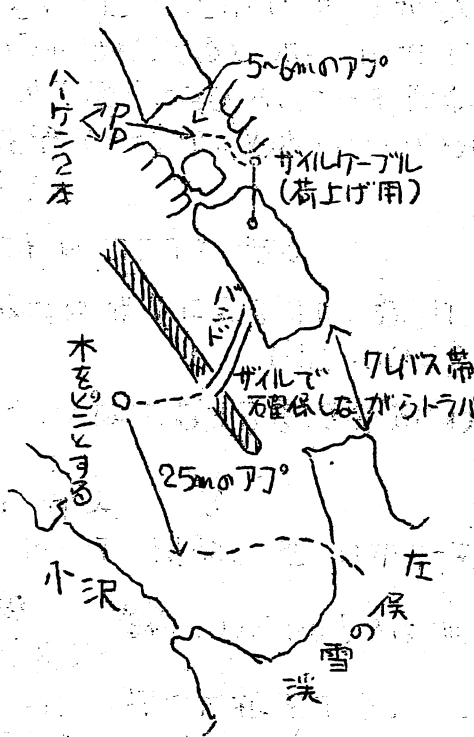 5~6mのアプ
ハーケン2本
P
P
ザイルケーブル
(荷上げ用)
バンド
クレバス帯
ザイルで
確保しながらトラバ
木をピンとする
25mのアプ
小沢
左俣の雪渓